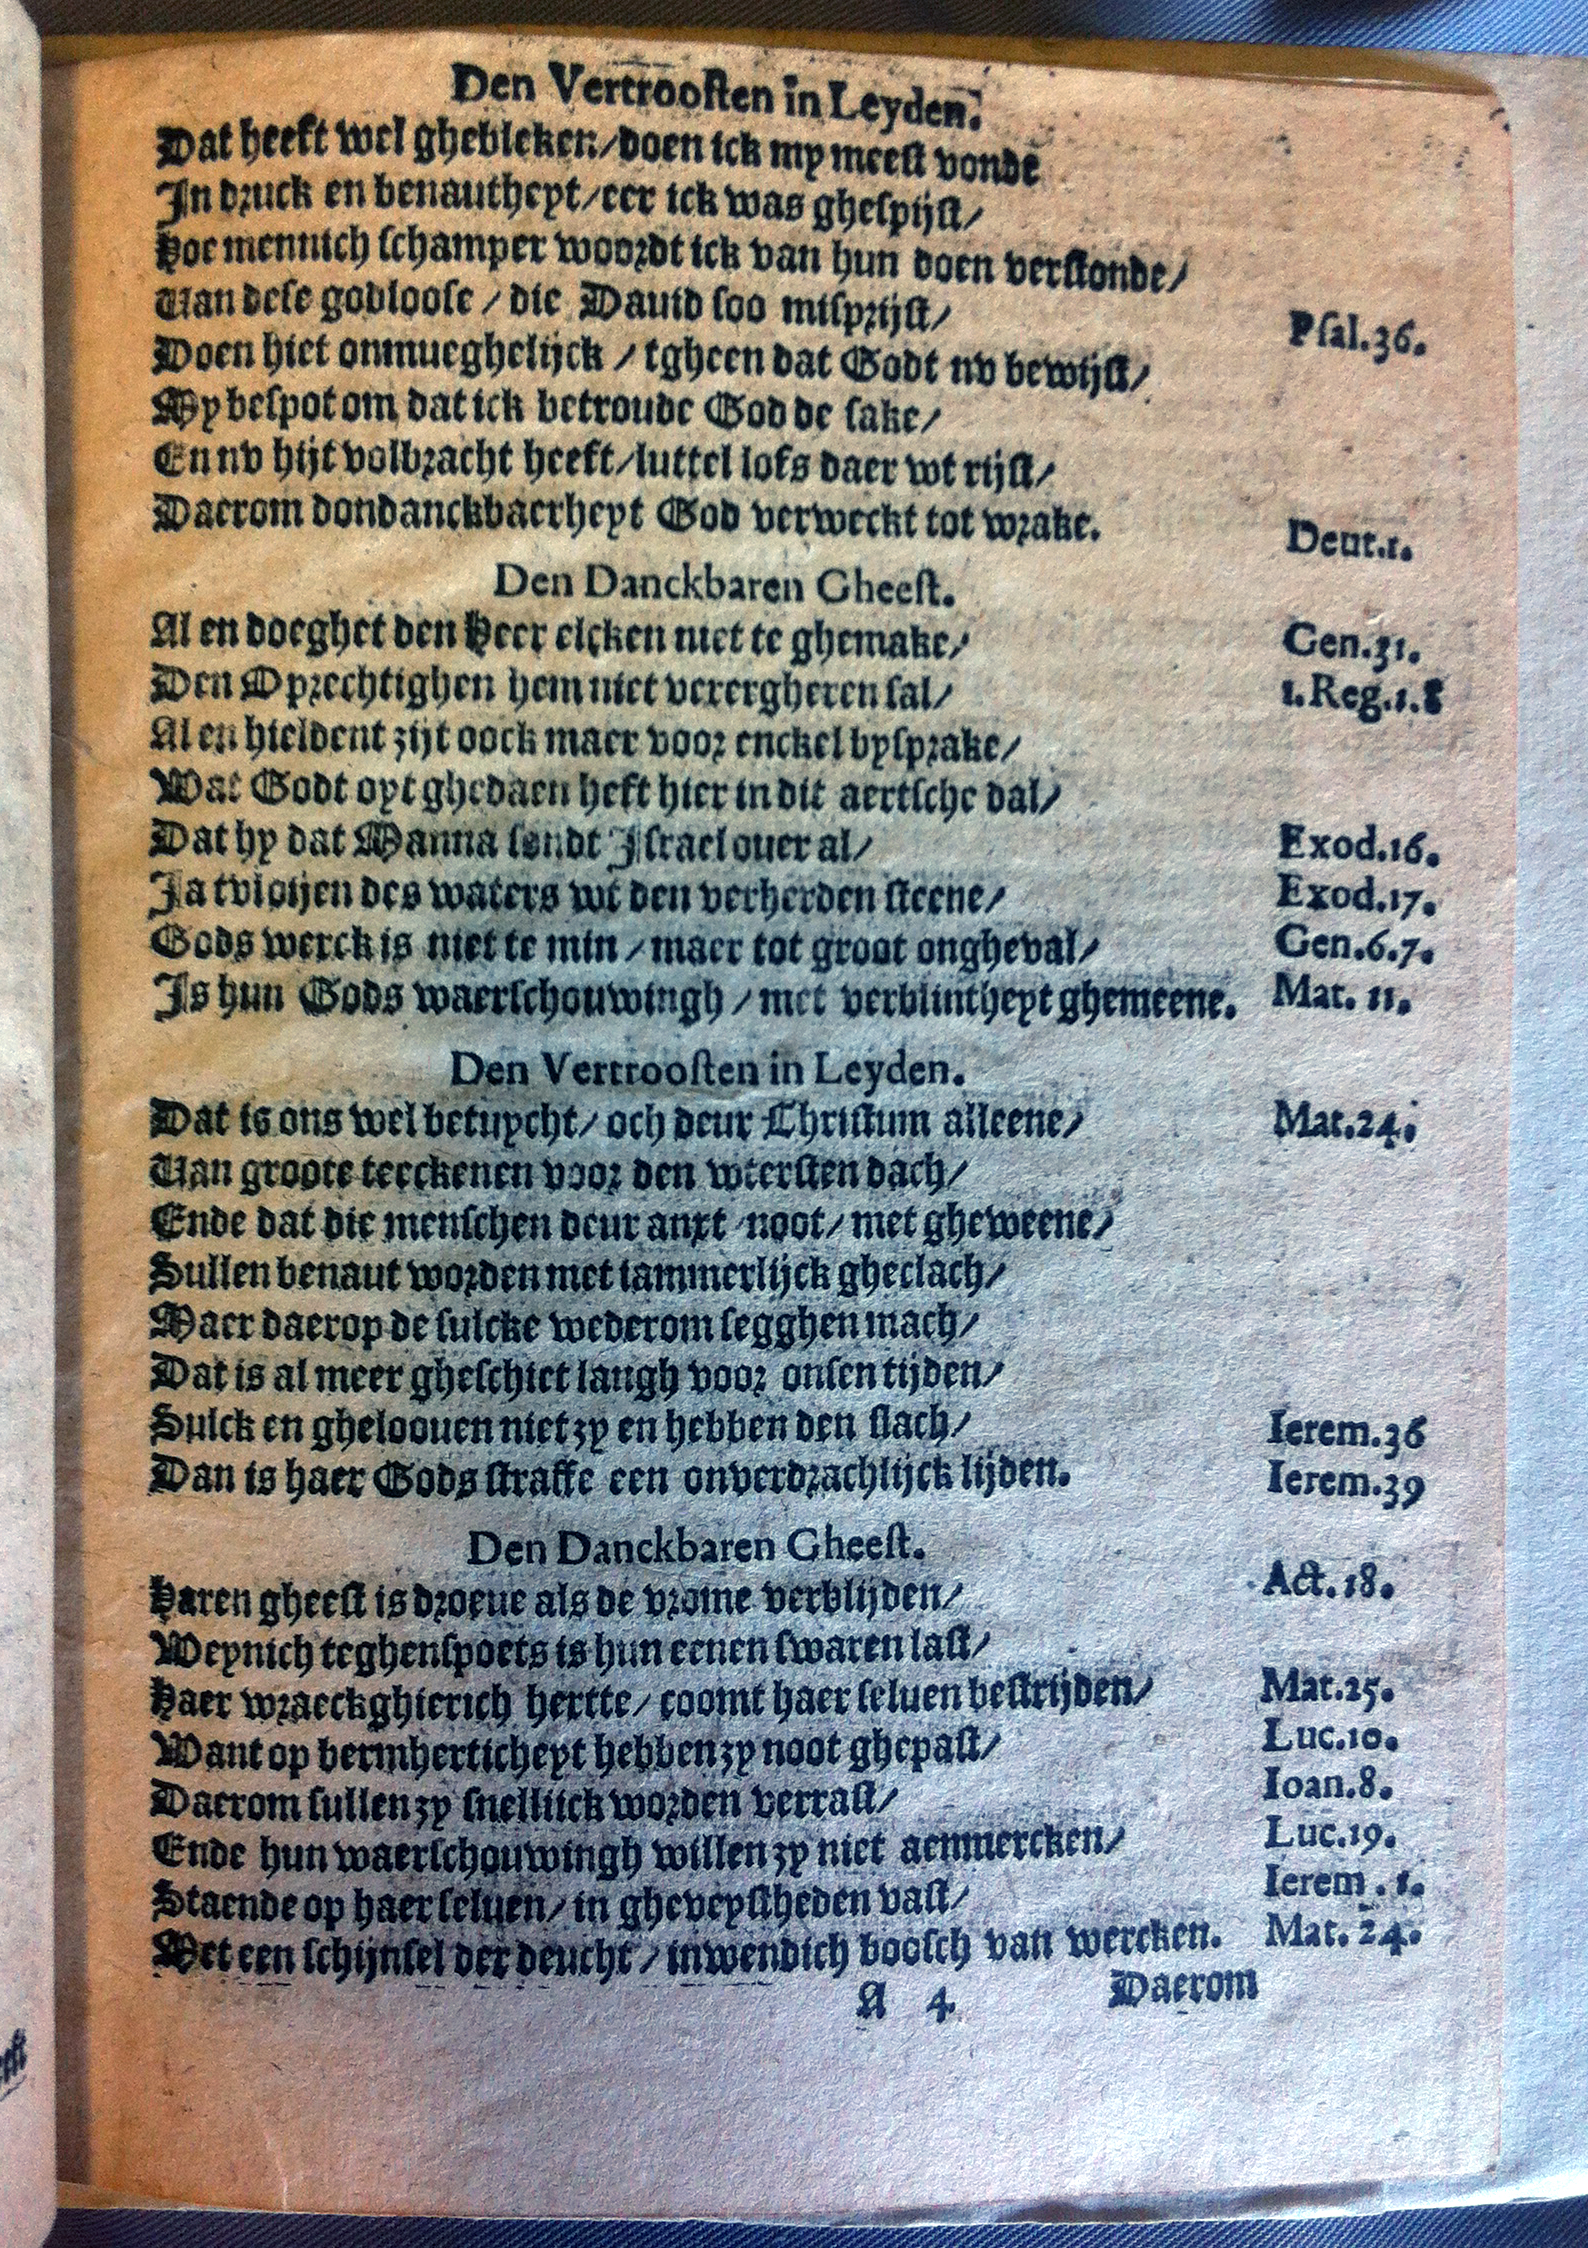 Den Vertrooſten in Leyden.
Dat heeft wel ghebleken/doen ick my meeſt vonde
In druck en benautheyt/eer ick was gheſpijſt/
Hoe mennich ſchamper woordt ick van hun doen verſtonde/
Van deſe godlooſe / die Dauid ſoo miſprijſt/ Pſal.36.
Doen hiet onmueghelijck / tgheen dat Godt nv bewijſt/
My beſpot om dat ick betroude God de ſake/
En nv hijt volbracht heeft/luttel lofs daer wt rijſt/
Daerom dondanckbaerheyt God verweckt tot wrake. Deut.1.
Den Danckbaren Gheeſt.
Al en doeghet den Heer elcken niet te ghemake/ Gen.31.
Den Oprechtighen hem niet verergheren ſal/ 1.Reg.1.8
Al en hieldent zijt oock maer voor enckel byſprake/
Wat Godt oyt ghedaen heft hier in dit aertſche dal/
Dat hy dat Manna ſondt Iſrael ouer al/ Exod.16.
Ja tvloijen des waters wt den verherden ſteene/ Exod.17.
Gods werck is niet te min / maer tot groot ongheval/ Gen.6.7.
Is hun Gods waerſchouwingh / met verblintheyt ghemeene. Mat. 11.
Den Vertrooſten in Leyden.
Dat is ons wel betuycht/ och deur Chriſtum alleene/ Mat.24.
Van groote teeckenen voor den wterſten dach/
Ende dat die menſchen deur anxt /noot/ met gheweene/
Sullen benaut worden met iammerlijck gheclach/
Maer daerop de ſulcke wederom ſegghen mach/
Dat is al meer gheſchiet langh voor onſen tijden/
Sulck en gheloouen niet zy en hebben den ſlach/ Ierem.36
Dan is haer Gods ſtraffe een onverdrachlijck lijden. Ierem.39
Den Danckbaren Gheeſt.
Haren gheeſt is droeue als de vrome verblijden/ Act.18.
Weynich teghenſpoets is hun eenen ſwaren laſt/
Haer wraeckghierich hertte/ coomt haer ſeluen beſtrijden/ Mat.25.
Want op bermherticheyt hebben zy noot ghepaſt/ Luc.10.
Daerom ſullen zy ſnellijck worden verraſt/ Ioan.8.
Ende hun waerſchouwingh willen zy niet aenmercken/ Luc.19.
Staende op haer ſeluen/ in gheveyſtheden vaſt/ Ierem.1.
Met een ſchijnſel der deucht / inwendich booſch van wercken. Mat. 24.
A 4 Daerom